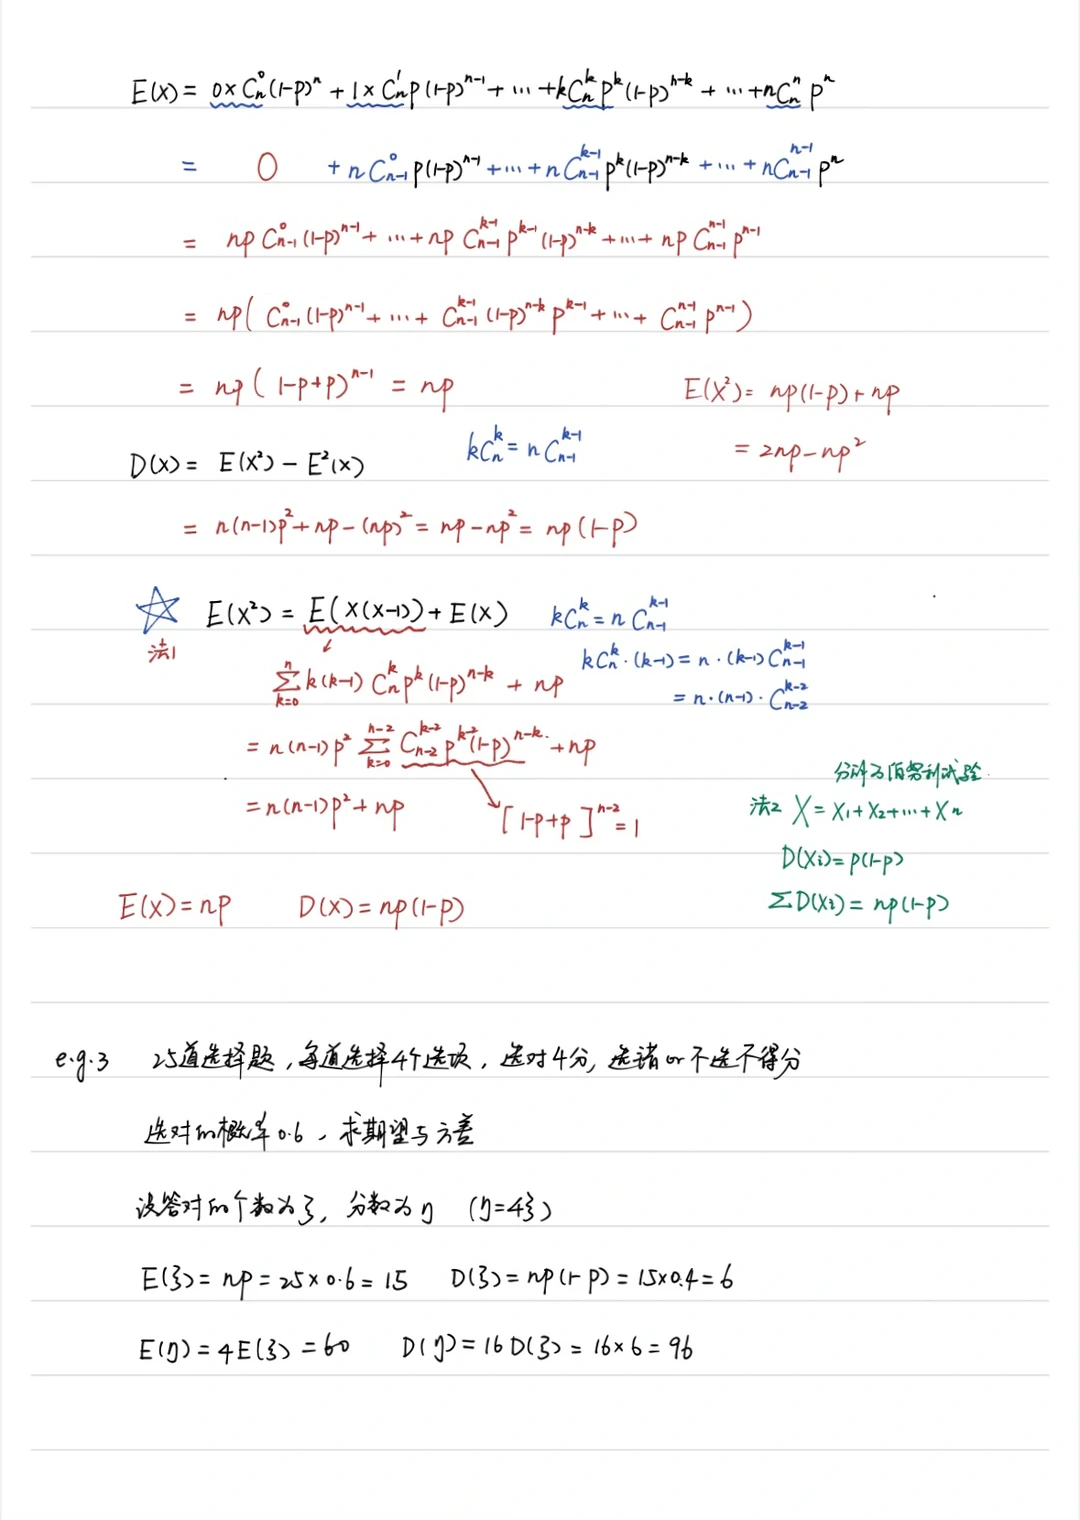 E(X) = 0×C_n^0 (1-p)^n + 1×C_n^1 p(1-p)^{n-1} + ⋯ + kC_n^k p^k (1-p)^{n-k} + ⋯ + nC_n^n p^n
= 0 + nC_{n-1}^0 p(1-p)^{n-1} + ⋯ + nC_{n-1}^{k-1} p^k (1-p)^{n-k} + ⋯ + nC_{n-1}^{n-1} p^n
= npC_{n-1}^0 (1-p)^{n-1} + ⋯ + npC_{n-1}^{k-1} p^{k-1} (1-p)^{n-k} + ⋯ + npC_{n-1}^{n-1} p^{n-1}
= np( C_{n-1}^0 (1-p)^{n-1} + ⋯ + C_{n-1}^{k-1} (1-p)^{n-k} p^{k-1} + ⋯ + C_{n-1}^{n-1} p^{n-1} )
= np( 1-p+p )^{n-1} = np
E(X²) = np(1-p) + np
= 2np - np²
D(X) = E(X²) - E²(X)
kC_n^k = nC_{n-1}^{k-1}
= n(n-1)p² + np - (np)² = np - np² = np(1-p)
☆ E(X²) = E(X(X-1)) + E(X)
法1
kC_n^k = nC_{n-1}^{k-1}
kC_n^k·(k-1) = n·(k-1)C_{n-1}^{k-1}
= n·(n-1)·C_{n-2}^{k-2}
∑_{k=0}^n k(k-1) C_n^k p^k (1-p)^{n-k} + np
= n(n-1)p² ∑_{k=0}^{n-2} C_{n-2}^{k-2} p^{k-2} (1-p)^{n-k} + np
= n(n-1)p² + np
[1-p+p]^{n-2} = 1
分解为伯努利试验
法2 X = X₁+X₂+⋯+Xn
D(Xi) = p(1-p)
∑D(Xi) = np(1-p)
E(X) = np D(X) = np(1-p)
e.g.3 25道选择题,每道选择4个选项,选对4分,选错or不选不得分
选对的概率0.6,求期望与方差
设答对的个数为ξ,分数为η (η=4ξ)
E(ξ) = np = 25×0.6 = 15 D(ξ) = np(1-p) = 15×0.4 = 6
E(η) = 4E(ξ) = 60 D(η) = 16D(ξ) = 16×6 = 96